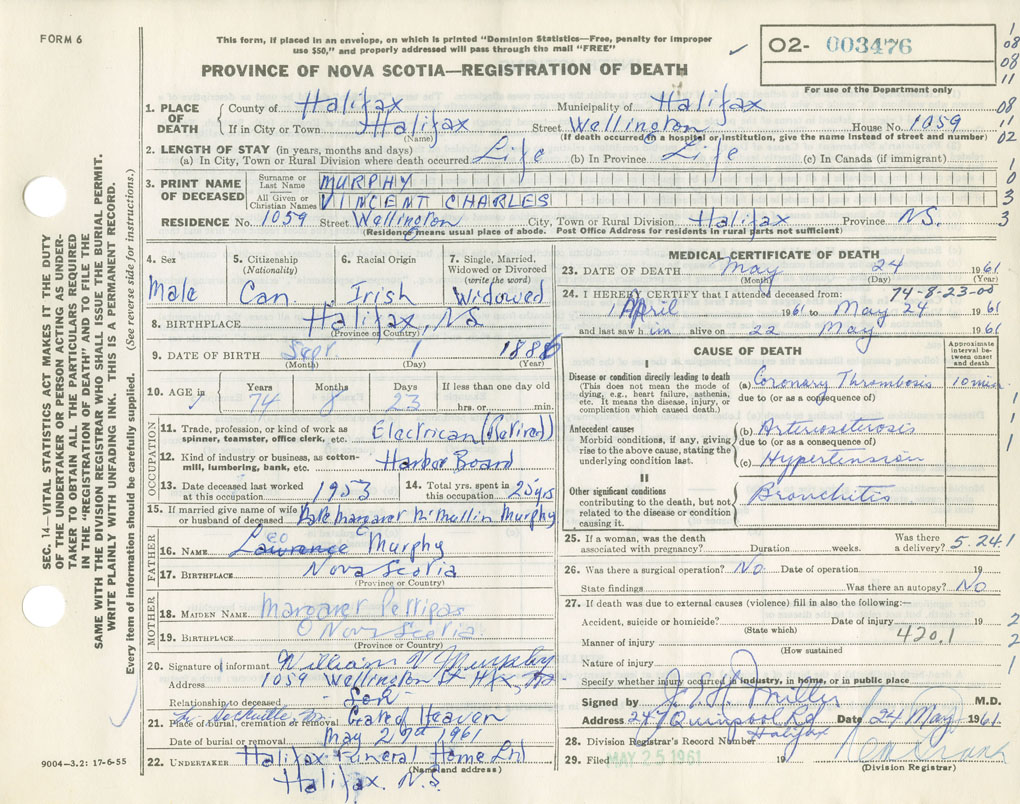 FORM 6
This form, if placed in an envelope, on which is printed "Dominion Statistics—Free, penalty for improper
use $50," and properly addressed will pass through the mail "FREE"
O2- 003476
For use of the Department only
PROVINCE OF NOVA SCOTIA—REGISTRATION OF DEATH
1. PLACE OF DEATH
County of Halifax Municipality of Halifax
If in City or Town Halifax Street Wellington House No. 1059
(Name) (If death occurred in a hospital or institution, give the name instead of street and number)
2. LENGTH OF STAY (in years, months and days)
(a) In City, Town or Rural Division where death occurred Life (b) In Province Life (c) In Canada (if immigrant)
3. PRINT NAME OF DECEASED
Surname or Last Name MURPHY
All Given or Christian Names VINCENT CHARLES
RESIDENCE No. 1059 Street Wellington City, Town or Rural Division Halifax Province N.S.
(Residence means usual place of abode. Post Office Address for residents in rural parts not sufficient)
4. Sex Male
5. Citizenship (Nationality) Can.
6. Racial Origin Irish
7. Single, Married, Widowed or Divorced (write the word) Widowed
8. BIRTHPLACE Halifax, N.S.
(Province or Country)
9. DATE OF BIRTH Sept. 1 1886
(Month) (Day) (Year)
10. AGE in Years 74 Months 8 Days 23 If less than one day old hrs. or min.
OCCUPATION
11. Trade, profession, or kind of work as spinner, teamster, office clerk, etc. Electrican (Retired)
12. Kind of industry or business, as cotton-mill, lumbering, bank, etc. Harbor Board
13. Date deceased last worked at this occupation 1953
14. Total yrs. spent in this occupation 25 yrs
15. If married give name of wife or husband of deceased Kate Margaret McMullin Murphy
FATHER
16. NAME Lawrence Leo Murphy
17. BIRTHPLACE Nova Scotia
(Province or Country)
MOTHER
18. MAIDEN NAME Margaret Pettipas
19. BIRTHPLACE Nova Scotia
(Province or Country)
20. Signature of informant William V Murphy
Address 1059 Wellington St Hfx
Relationship to deceased Son
21. Place of burial, cremation or removal Gate of Heaven
Date of burial or removal May 27th 1961
22. UNDERTAKER Halifax Funeral Home Ltd
(Name and address)
Halifax. N.S.
9004—3.2: 17-6-55
MEDICAL CERTIFICATE OF DEATH
23. DATE OF DEATH May 24 1961
(Month) (Day) (Year)
74-8-23-00
24. I HEREBY CERTIFY that I attended deceased from:
1 April 1961 to May 24 1961
and last saw him alive on 22 May 1961
CAUSE OF DEATH
Approximate interval between onset and death
I
Disease or condition directly leading to death
(This does not mean the mode of dying, e.g., heart failure, asthenia, etc. It means the disease, injury, or complication which caused death.
(a) Coronary Thrombosis 10 min
due to (or as a consequence of)
Antecedent causes
Morbid conditions, if any, giving rise to the above cause, stating the underlying condition last.
(b) Arteriosclerosis
due to (or as a consequence of)
(c) Hypertension
II
Other significant conditions
contributing to the death, but not related to the disease or condition causing it.
Bronchitis
25. If a woman, was the death associated with pregnancy? Duration weeks. Was there a delivery?
5.24.1
26. Was there a surgical operation? No Date of operation 19
State findings Was there an autopsy? No
27. If death was due to external causes (violence) fill in also the following:—
Accident, suicide or homicide? Date of injury 19
(State which)
420.1
Manner of injury
(How sustained
Nature of injury
Specify whether injury occurred in industry, in home, or in public place
Signed by Miller M.D.
Address 247 Quinpool Rd Halifax Date 24 May 1961
28. Division Registrar's Record Number
29. Filed MAY 25 1961 19
(Division Registrar)
SEC. 14—VITAL STATISTICS ACT MAKES IT THE DUTY
OF THE UNDERTAKER OR PERSON ACTING AS UNDER-
TAKER TO OBTAIN ALL THE PARTICULARS REQUIRED
IN THE "REGISTRATION OF DEATH" AND TO FILE THE
SAME WITH THE DIVISION REGISTRAR WHO SHALL ISSUE THE BURIAL PERMIT.
WRITE PLAINLY WITH UNFADING INK. THIS IS A PERMANENT RECORD.
Every item of information should be carefully supplied. (See reverse side for instructions.)
1
08
08
11
08
11
02
1
0
3
3
1
1
1
2
2
1